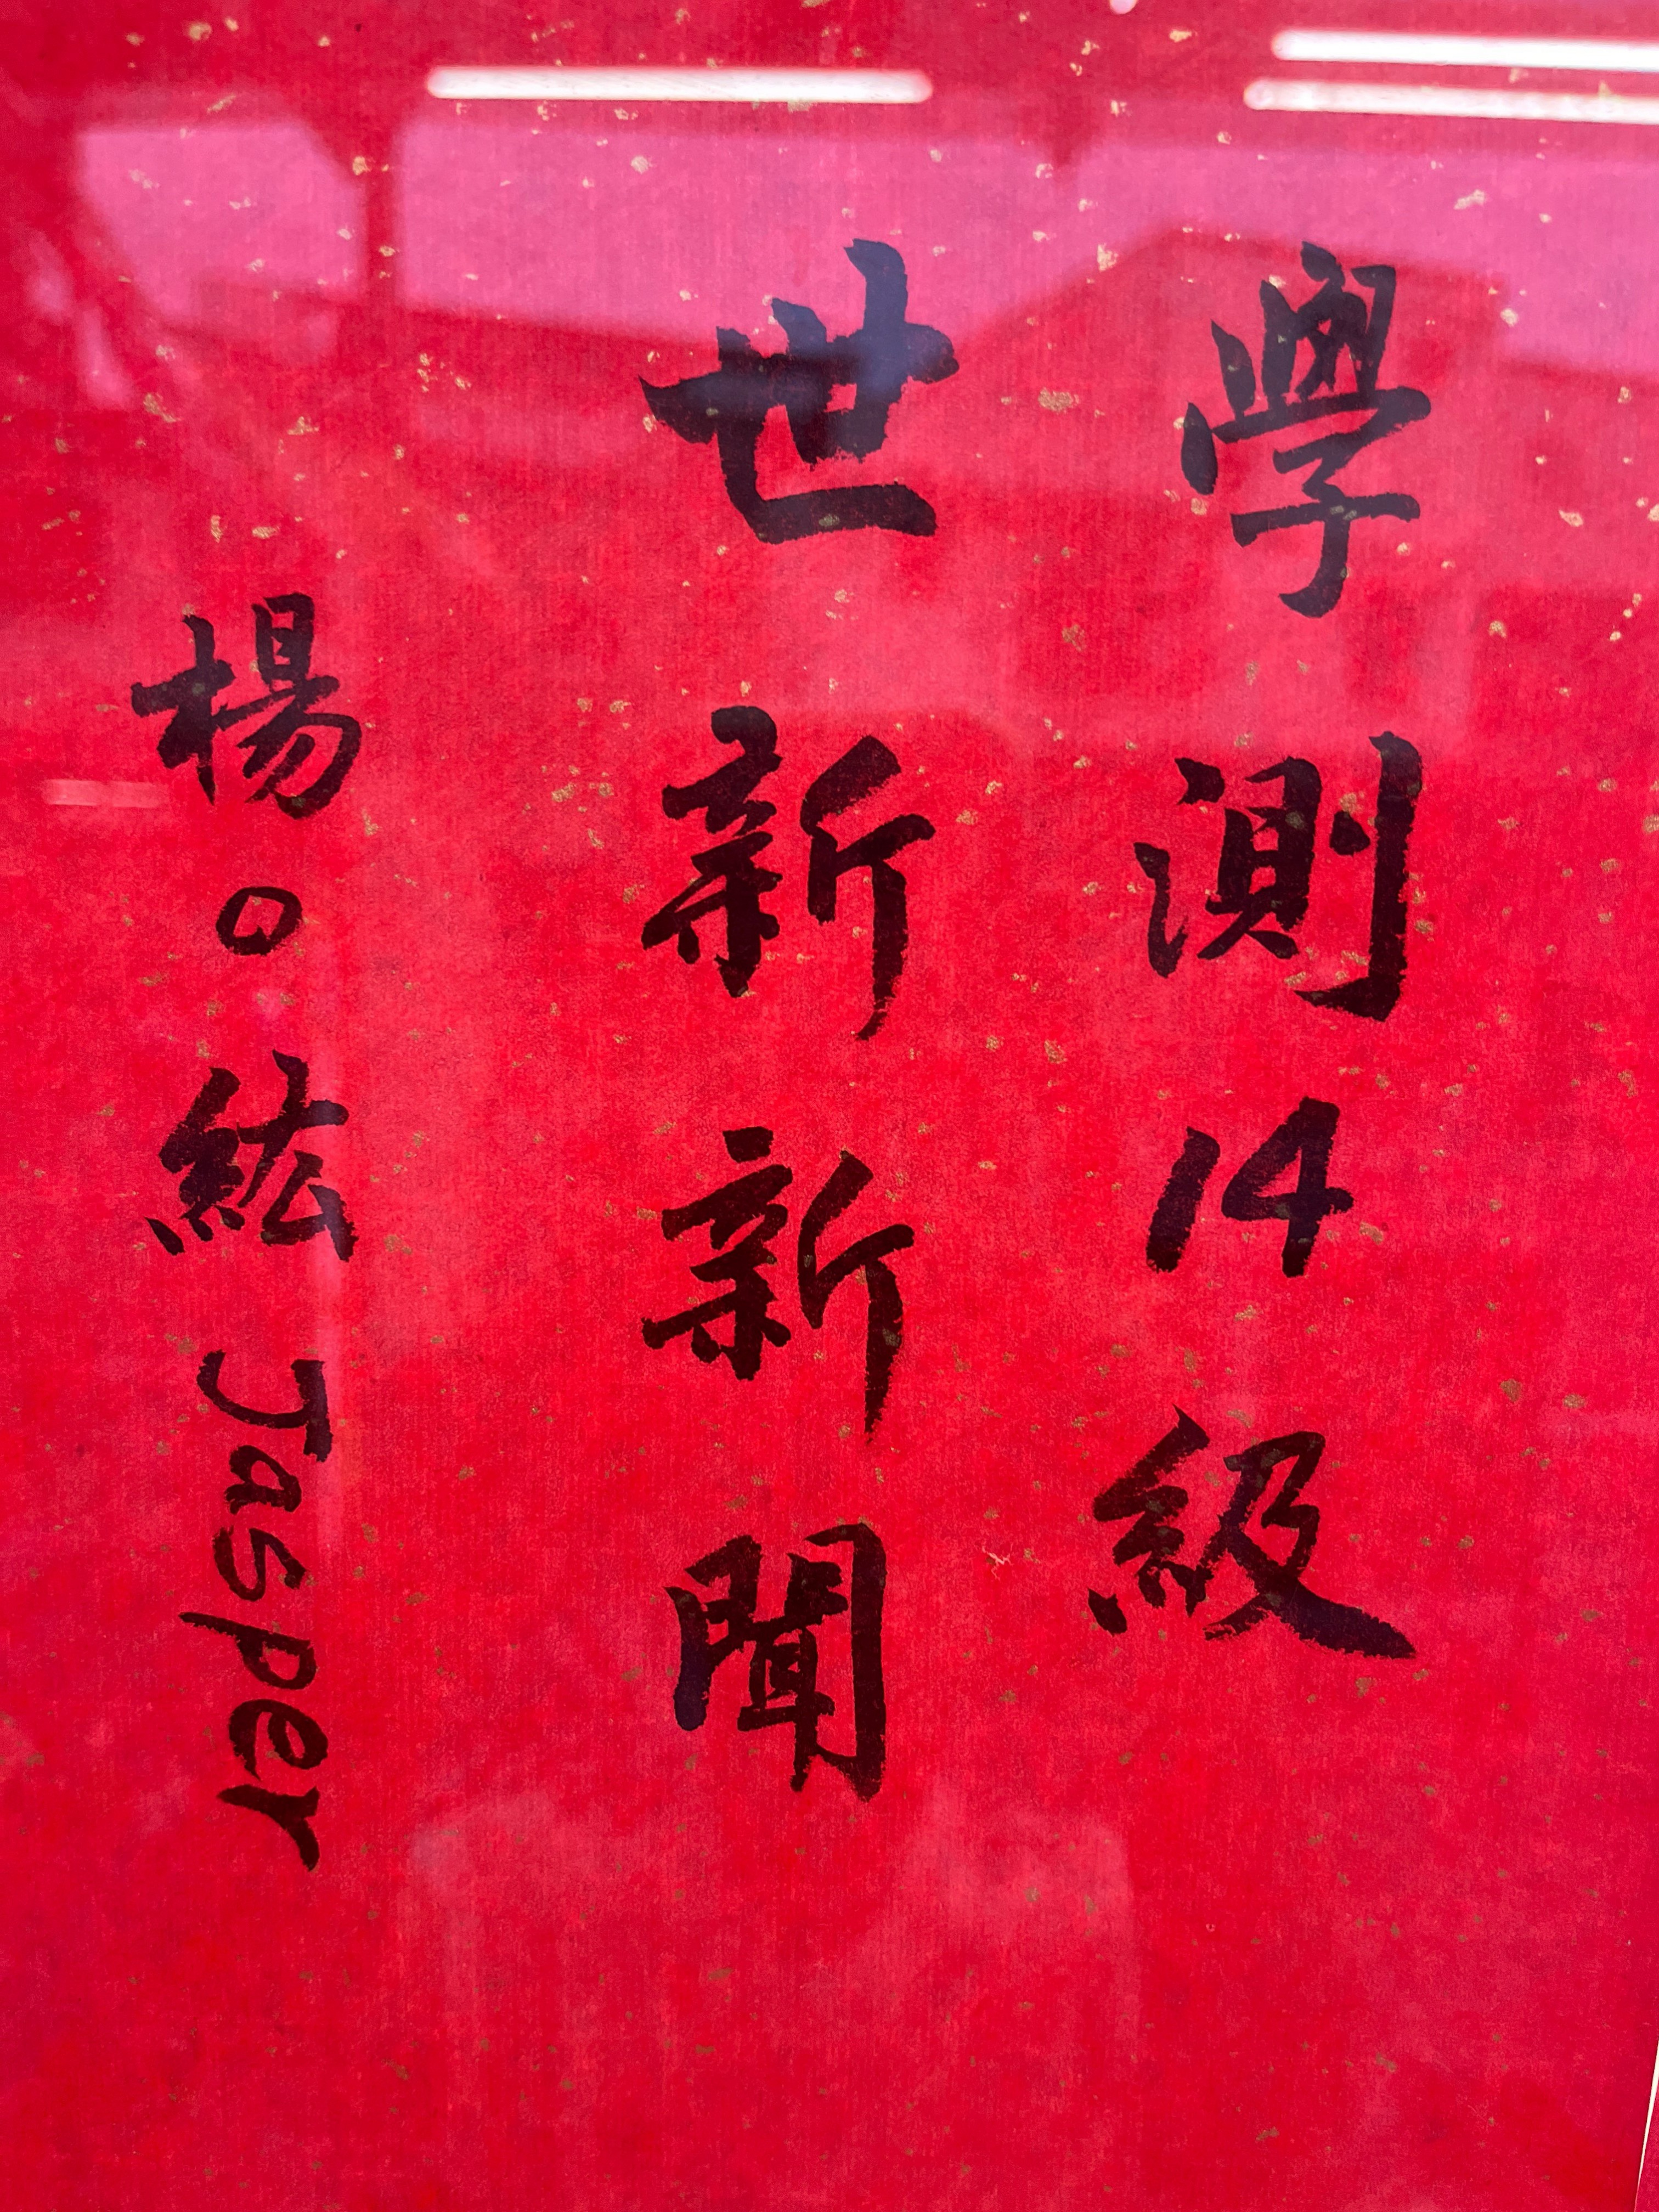 學測14級
世新新聞
楊o紘 Jasper